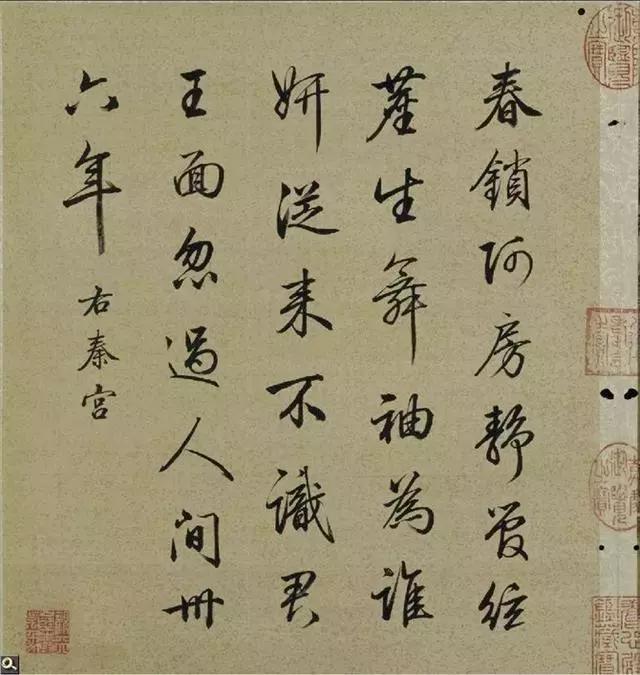 春鎖阿房静管絃
塵生舞袖為誰
妍從来不識君
王面忽過人間卅
六年
右秦宮